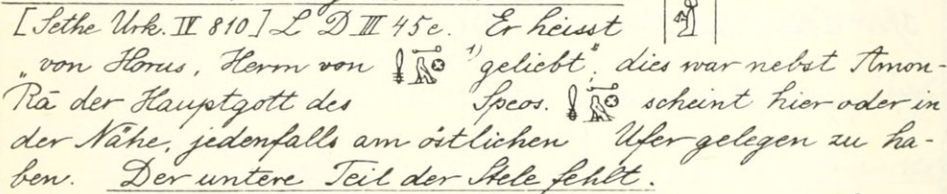 [Sethe Urk. IV 810] L D III 45 e. Er heisst
„von Horus, Herrn von 𓌸𓅓𓊖 ¹⁾ geliebt“, dies war nebst Amon-
Rā der Hauptgott des Speos. scheint hier oder in
der Nähe, jedenfalls am östlichen Ufer gelegen zu ha-
ben. Der untere Teil der Stele fehlt.